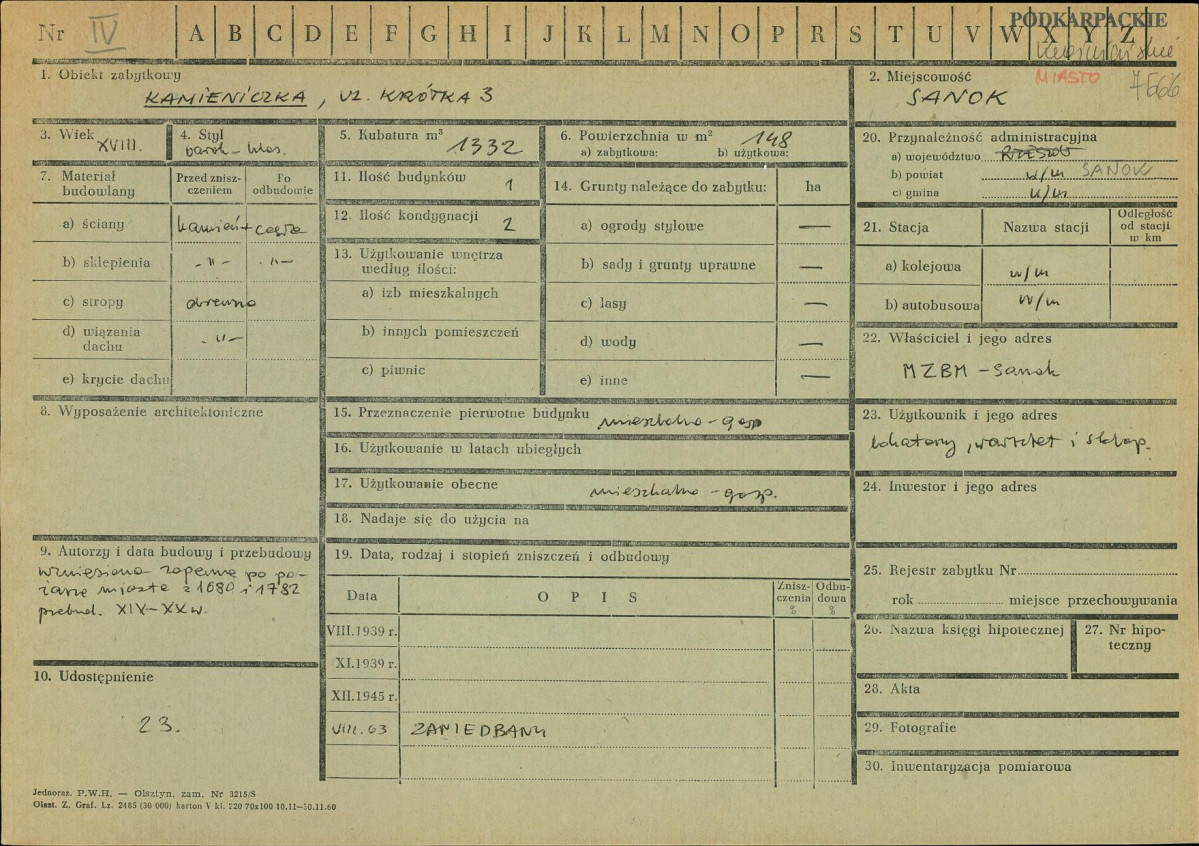 Nr IV A B C D E F G H I J K L M N O P R S T U V W X Y Z
PODKARPACKIE
MIASTO 7566
1. Obiekt zabytkowy
KAMIENICZKA, UL. KRÓTKA 3
2. Miejscowość
SANOK
3. Wiek
XVIII.
4. Styl
barok-klas.
5. Kubatura m³
1332
6. Powierzchnia w m² 148
a) zabytkowa: b) użytkowa:
7. Materiał budowlany
Przed zniszczeniem
Po odbudowie
a) ściany kamień + cegła
b) sklepienia -"- -"-
c) stropy drewno
d) wiązania dachu -"-
e) krycie dachu
8. Wyposażenie architektoniczne
9. Autorzy i data budowy i przebudowy
wzniesiona zapewne po po-
żarze miasta z 1680 i 1782
przebud. XIX-XX w.
10. Udostępnienie
23.
11. Ilość budynków 1
12. Ilość kondygnacji 2
13. Użytkowanie wnętrza
według ilości:
a) izb mieszkalnych
b) innych pomieszczeń
c) piwnic
14. Grunty należące do zabytku: ha
a) ogrody stylowe —
b) sady i grunty uprawne —
c) lasy —
d) wody —
e) inne —
15. Przeznaczenie pierwotne budynku mieszkalno-gosp
16. Użytkowanie w latach ubiegłych
17. Użytkowanie obecne mieszkalno-gosp.
18. Nadaje się do użycia na
19. Data, rodzaj i stopień zniszczeń i odbudowy
Data OPIS Zniszczenia % Odbudowa %
VIII.1939 r.
XI.1939 r.
XII.1945 r.
VIII.63 ZANIEDBANY
20. Przynależność administracyjna
a) województwo RZESZÓW
b) powiat w/m SANOK
c) gmina w/m
21. Stacja Nazwa stacji Odległość od stacji w km
a) kolejowa w/m
b) autobusowa w/m
22. Właściciel i jego adres
MZBM - Sanok
23. Użytkownik i jego adres
lokatorzy, warsztat i sklep.
24. Inwestor i jego adres
25. Rejestr zabytku Nr
rok miejsce przechowywania
26. Nazwa księgi hipotecznej
27. Nr hipo-
teczny
28. Akta
29. Fotografie
30. Inwentaryzacja pomiarowa
Jednoraz. P.W.H. — Olsztyn, zam. Nr 3215/S
Olszt. Z. Graf. Lz. 2485 (30 000) karton V kl. 220 70x100 10.11—30.11.60